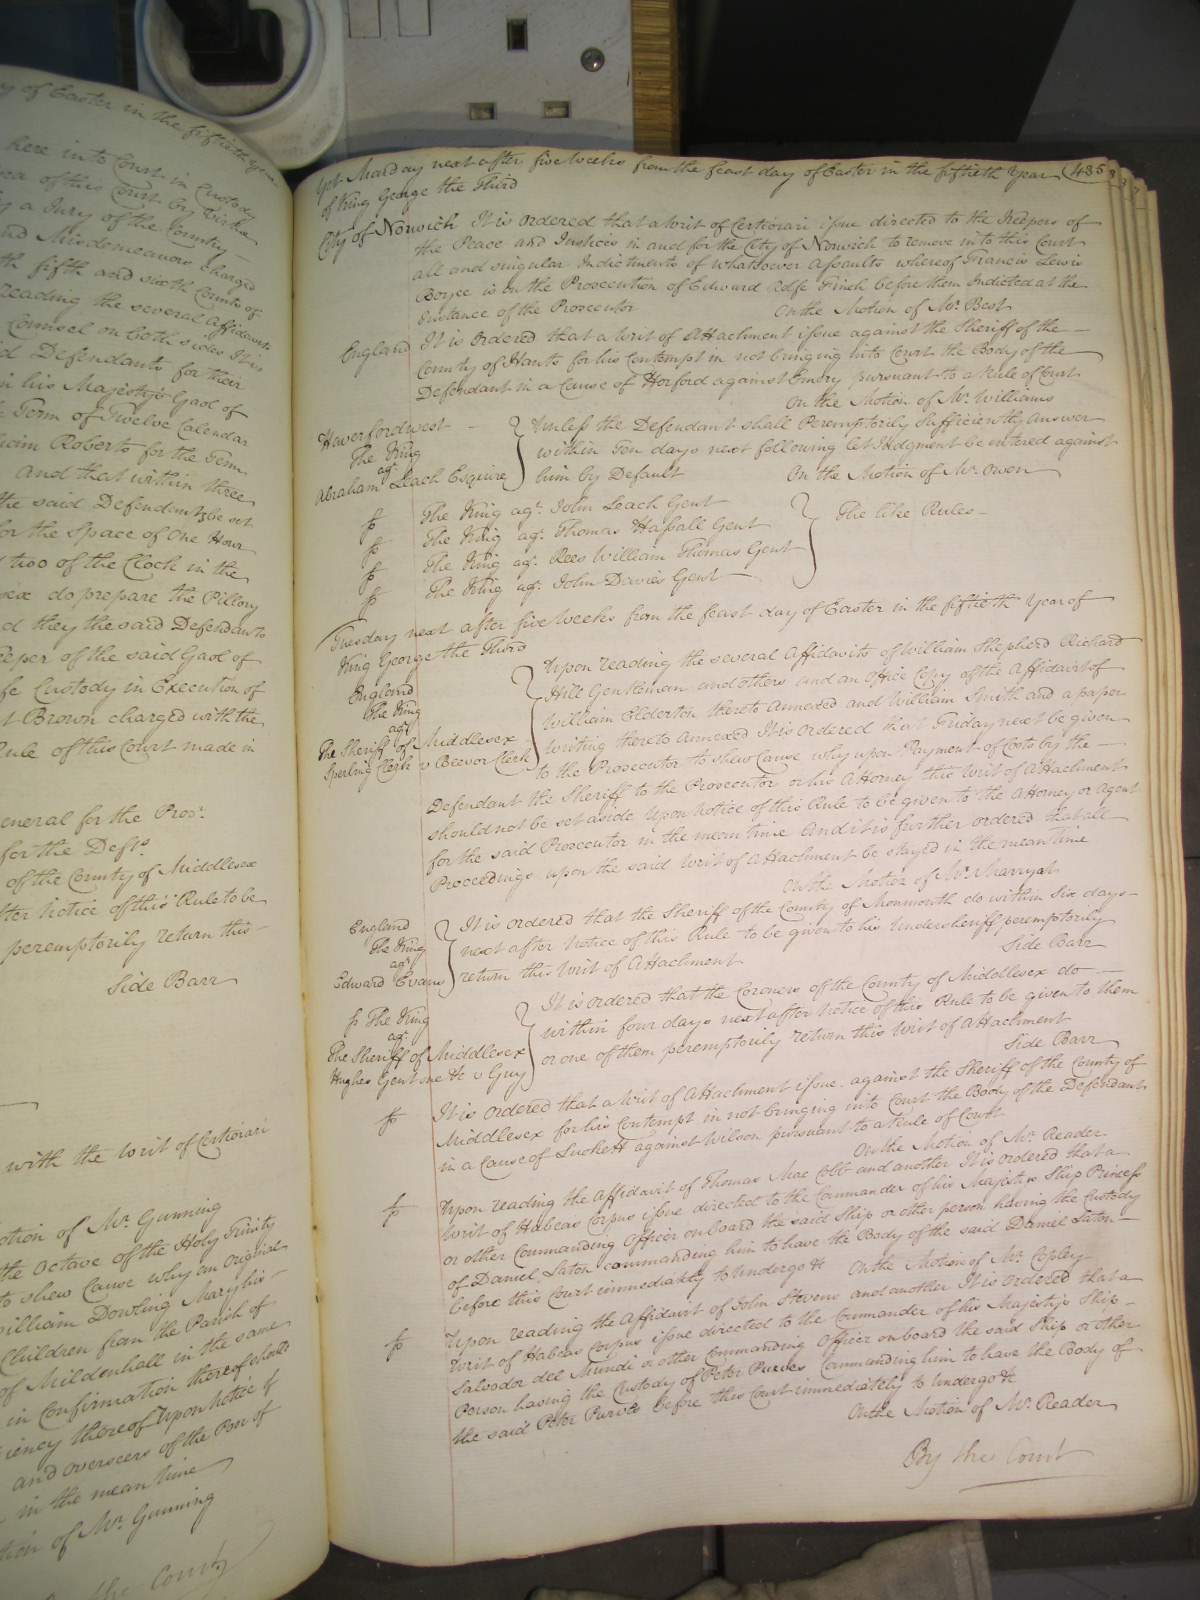 y of Easter in the fiftieth year
here into Court in Custody
of this Court by Virtue
a Jury of the Country
nd Misdemeanors charged
th fifth and sixth Counts of
reading the several Affidavits
Counsel on both sides It is
d Defendants for their
n his Majesty's Gaol of
Term of Twelve Calendar
liam Roberts for the Term
and that within three
the said Defendants be set
for the Space of One Hour
two of the Clock in the
sex do prepare the Pillory
d they the said Defendants
eeper of the said Gaol of
fe Custody in Execution of
t Brown charged with the
Rule of this Court made in
eneral for the Prosr.
for the Defts.
of the County of Middlesex
fter Notice of this Rule to be
peremptorily return this
Side Barr
with the Writ of Certiorari
otion of Mr. Gunning
the Octave of the Holy Trinity
to shew Cause why an Original
William Dowling Mary his
Children from the Parish of
of Mildenhall in the same
in Confirmation thereof should
iency thereof Upon Notice of
and Overseers of the Poor of
in the mean time
tion of Mr. Gunning
the Court
Yet Monday next after five Weeks from the feast day of Easter in the fiftieth Year 485
of King George the Third
City of Norwich It is ordered that a Writ of Certiorari issue directed to the Keepers of
the Peace and Justices in and for the City of Norwich to remove into this Court
all and singular Indictments of whatsoever Assaults whereof Francis Lewis
Boyce is on the Prosecution of Edward Rolfe Finch before them Indicted at the
Instance of the Prosecutor On the Motion of Mr. Best
England It is Ordered that a Writ of Attachment issue against the Sheriff of the
County of Hants for his Contempt in not bringing into Court the Body of the
Defendant in a Cause of Horford against Emery pursuant to a Rule of Court
On the Motion of Mr. Williams
Haverfordwest
The King
agt.
Abraham Leach Esquire
Unless the Defendant shall Peremptorily Sufficiently Answer
within Ten days next following let Judgment be entered against
him by Default On the Motion of Mr. Owen
fs The King agt. John Leach Gent
fs The King agt. Thomas Hassall Gent
fs The King agt. Rees William Thomas Gent
fs The King agt. John Davies Gent
The like Rules
Tuesday next after five Weeks from the feast day of Easter in the fiftieth Year of
King George the Third
England
The King
agt.
The Sheriff of Middlesex
Sperling Clerk v Brevor Clerk
Upon reading the several Affidavits of William Shepherd Richard
Hill Gentleman and others and an Office Copy of the Affidavit of
William Elderton thereto Annexed and William Smith and a paper
writing thereto Annexed It is Ordered that Friday next be given
to the Prosecutor to shew Cause why upon Payment of Costs by the
Defendant the Sheriff to the Prosecutor or his Attorney this Writ of Attachment
should not be set aside Upon Notice of this Rule to be given to the Attorney or Agent
for the said Prosecutor in the mean time And it is further ordered that all
Proceedings upon the said Writ of Attachment be stayed in the mean time
On the Motion of Mr. Marryat
England
The King
agt.
Edward Evans
It is ordered that the Sheriff of the County of Monmouth do within Six days
next after Notice of this Rule to be given to his Undersheriff peremptorily
return this Writ of Attachment Side Barr
fs The King
agt.
The Sheriff of Middlesex
Hughes Gent one &c v Guy
It is ordered that the Coroners of the County of Middlesex do
within four days next after Notice of this Rule to be given to them
or one of them peremptorily return this Writ of Attachment
Side Barr
fs It is ordered that a Writ of Attachment issue against the Sheriff of the County of
Middlesex for his Contempt in not bringing into Court the Body of the Defendant
in a Cause of Luckett against Wilson pursuant to a Rule of Court
On the Motion of Mr. Reader
fs Upon reading the Affidavit of Thomas Mac Cobb and another It is ordered that a
Writ of Habeas Corpus issue directed to the Commander of his Majestys Ship Princess
or other Commanding Officer on board the said Ship or other person having the Custody
of Daniel Laton commanding him to have the Body of the said Daniel Laton
before this Court immediately to Undergo &c On the Motion of Mr. Copley
fs Upon reading the Affidavit of John Stevens and another It is Ordered that a
Writ of Habeas Corpus issue directed to the Commander of his Majestys Ship
Salvador del Mundi or other Commanding Officer on board the said Ship or other
Person having the Custody of Peter Purves Commanding him to have the Body of
the said Peter Purves before this Court immediately to Undergo &c
On the Motion of Mr. Reader
By the Court